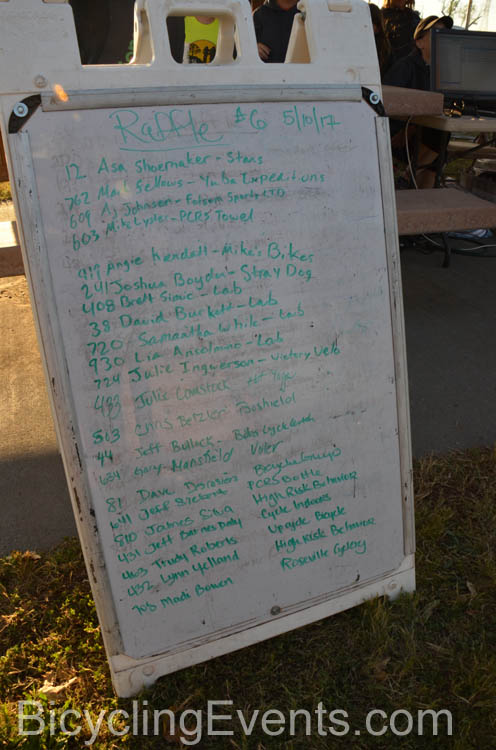 Raffle #6 5/10/17
12 Asa Shoemaker - Stans
762 Mark Fellows - YuBa Expeditions
609 AJ Johnsen - Folsom Sports LTD
603 Mike Lyster - PCRS Towel
Angie Kendall - Mike's Bikes
241 Joshua Boyden - Stray Dog
408 Brett - Lab
38 David Burkett - Lab
720 Samantha While - Lab
930 Lia - Lab
724 Julie Ingwerson - Victory Velo
Julie Comstock Hot Yoga
563 Chris Betzler Boshield
44 Jeff Bullock
Gary Mansfield Voler
81 Dave
641 PCRS Bottle
810 James Silva High Risk Behavior
431 Jeff Barnes Daly Cycle Indoors
463 Trudy Roberts Upcycle Bicycle
432 Lynn Yelland High Risk Behavior
705 Madi Bowen Roseville Cyclery
BicyclingEvents.com